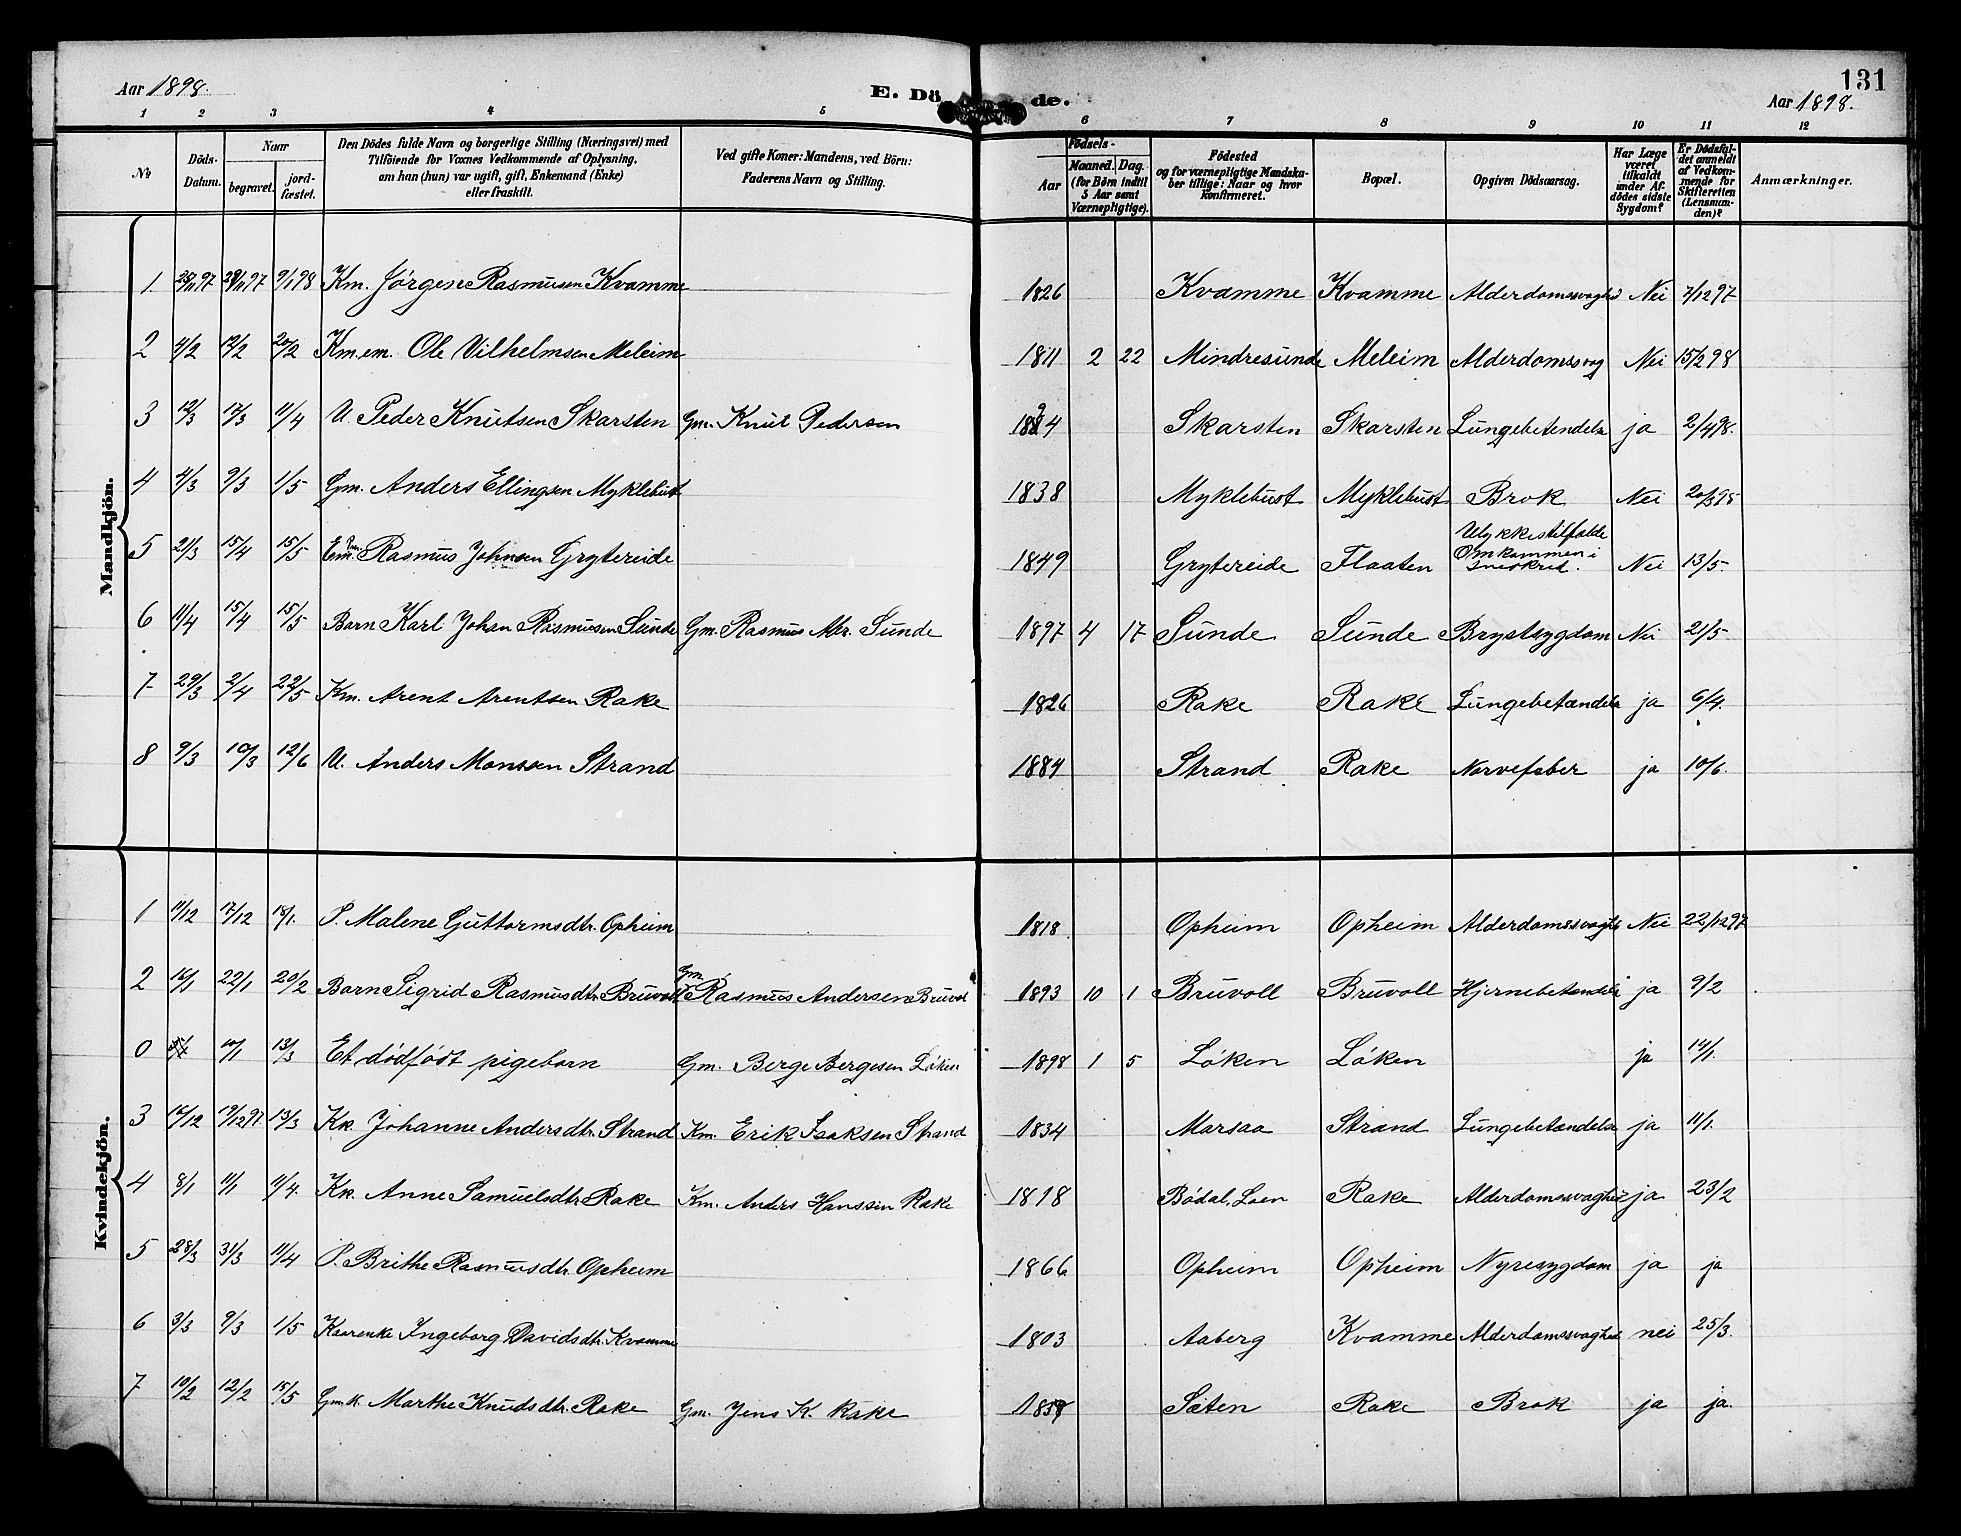 Aar 1898. E. Dö de. 131
Aar 1898.
1 2 3 4 5 6 7 8 9 10 11 12
No
Döds-
Datum.
Naar
begravet.
jord-
fæstet.
Den Dödes fulde Navn og borgerlige Stilling (Næringsvei) med
Tilföiende for Voxnes Vedkommende af Oplysning,
om han (hun) var ugift, gift, Enkemand (Enke)
eller fraskilt.
Ved gifte Koner: Mandens, ved Börn:
Faderens Navn og Stilling.
Födsels-
Aar
Maaned. Dag.
(for Börn indtil
5 Aar samt
Værnepligtige).
Födested
og for værnepligtige Mandska-
ber tillige: Naar og hvor
konfirmeret.
Bopæl.
Opgiven Dödsaarsag.
Har Læge
været
tilkaldt
under Af-
dödes sidste
Sygdom?
Er Dödsfal-
det anmeldt
af Vedkom-
mende for
Skifteretten
(Lensman-
den)?
Anmærkninger.
Mandkjön.
1. 9/1 98 Km. Jørgen Rasmusen Kvamme 1826 Kvamme Kvamme Alderdomssvaghed Nei 7/12 97
2 4/2 12/2 20/2 Km.em. Ole Vilhelmsen Meleim 1811 2 22 Mindresunde Meleim Alderdomssvag Nei 15/2 98
3 12/3 17/3 11/4 U. Peder Knutsen Skarsten Gm. Knut Pedersen Skarsten Skarsten Lungebetendelse ja 2/4 98.
4 4/3 9/3 1/5 Gm. Anders Ellingsen Myklebust 1838 Myklebust Myklebust Brok Nei
5 2/3 15/4 15/5 Rasmus Johnsen Grytereide 1849 Grytereide Flaaten Ulykkestilfælde Omkommen i sneskred. Nei 13/5-
6 11/4 15/4 15/5 Barn Karl Johan Rasmusen Sunde Gm. Rasmus Mkr. Sunde 1897 4 17 Sunde Sunde Brystsygdom Nei 21/5-
7 29/3 2/4 22/5 Km. Arent Arentsen Rake 1826 Rake Rake Lungebetændelse ja 6/4.
8 9/3 10/3 12/6 U. Anders Monssen Strand 1884 Strand Rake Nervefeber ja 10/6.
Kvindekjön.
1 11/12 17/12 18/1. P. Malene Guttormsdtr. Opheim 1818 Opheim Opheim Alderdomssvaghed Nei 22/12 97
2 16/1 22/1 20/2 Barn Sigrid Rasmusdtr. Bruvoll Gm. Rasmus Andersen Bruvol 1893 10 1 Bruvoll Bruvoll Hjernebetændelse ja 9/2
0 10/1 13/3 Et dødfødt pigebarn Gm. Berge Bergesen Løken 1898 1 5 Løken Løken ja 14/1.
3 17/12 19/12 97 13/3 Kk. Johanne Andersdtr. Strand Km. Erik Isaksen Strand 1834 Marsaa Strand Lungebetændelse ja 11/1.
4 8/1 11/1 11/4. Kk. Anne Samuelsdtr. Rake Km. Anders Hanssen Rake 1818 Bødal, Loen Rake Alderdomssvaghed ja 23/2
5 28/3 31/3 11/4 P. Brithe Rasmusdtr. Opheim 1866 Opheim Opheim Nyresygdom ja ja
6 3/3 9/3 1/5 Kaarenke Ingeborg Davidsdtr. Kvamme 1803 Aaberg Kvamme Alderdomssvaghed nei 25/3.
7 10/2 12/2 15/5 Gmk. Marthe Knudsdtr. Rake Gm. Jens K. Rake Sæten Rake Brok ja ja.